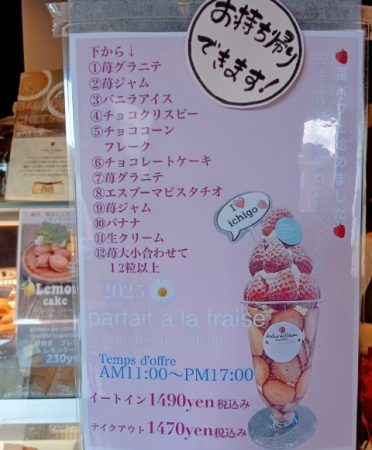 お持ち帰り
できます!
苺パフェ始めました
下から↓
①苺グラニテ
②苺ジャム
③バニラアイス
④チョコクリスピー
⑤チョココーン
フレーク
⑥チョコレートケーキ
⑦苺グラニテ
⑧エスプーマピスタチオ
⑨苺ジャム
⑩バナナ
⑪生クリーム
⑫苺大小合わせて
12粒以上
I
ichigo
2025
parfait à la fraise
atelier de
Temps d'offre
AM11:00～PM17:00
イートイン1490yen税込み
テイクアウト1470yen税込み
Lemon
cake
230yen